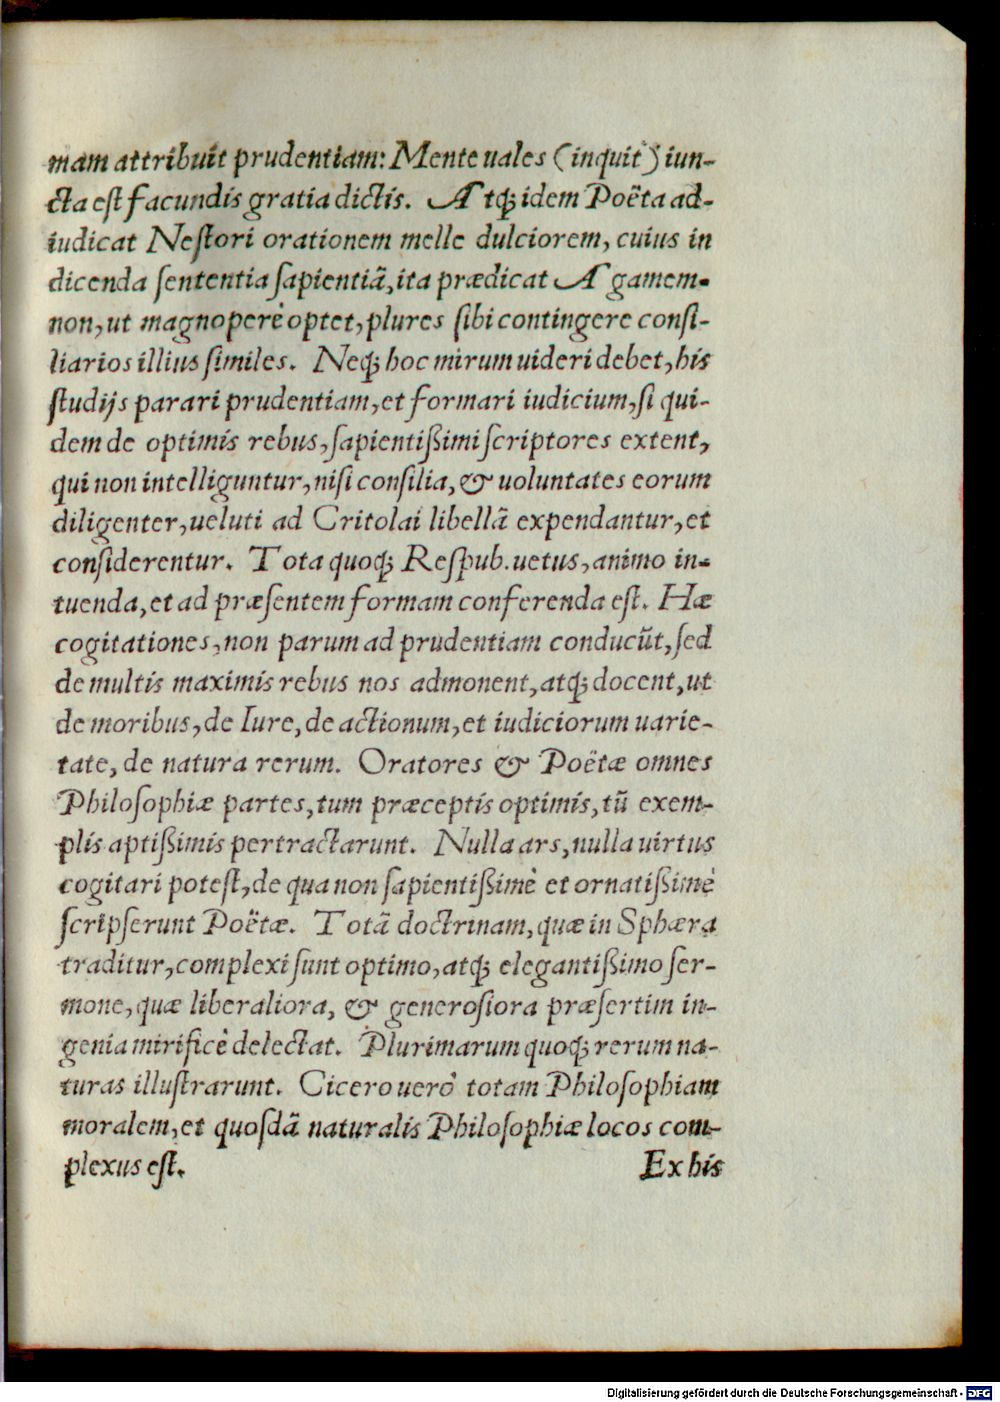 mam attribuit prudentiam: Mente uales (inquit) iun-
cta est facundis gratia dictis. Atq; idem Poëta ad-
iudicat Nestori orationem melle dulciorem, cuius in
dicenda sententia sapientiã, ita prædicat Agamem-
non, ut magnoperè optet, plures sibi contingere consi-
liarios illius similes. Neq; hoc mirum uideri debet, his
studijs parari prudentiam, et formari iudicium, si qui-
dem de optimis rebus, sapientißimi scriptores extent,
qui non intelliguntur, nisi consilia, & uoluntates eorum
diligenter, ueluti ad Critolai libellã expendantur, et
considerentur. Tota quoq; Respub. uetus, animo in-
tuenda, et ad præsentem formam conferenda est. Hæ
cogitationes, non parum ad prudentiam conducũt, sed
de multis maximis rebus nos admonent, atq; docent, ut
de moribus, de Iure, de actionum, et iudiciorum uarie-
tate, de natura rerum. Oratores & Poëtæ omnes
Philosophiæ partes, tum præceptis optimis, tũ exem-
plis aptißimis pertractarunt. Nulla ars, nulla uirtus
cogitari potest, de qua non sapientißimè et ornatißimè
scripserunt Poëtæ. Totã doctrinam, quæ in Sphæra
traditur, complexi sunt optimo, atq; elegantißimo ser-
mone, quæ liberaliora, & generosiora præsertim in-
genia mirificè delectat. Plurimarum quoq; rerum na-
turas illustrarunt. Cicero uerò totam Philosophiam
moralem, et quosdã naturalis Philosophiæ locos com-
plexus est. Ex his
Digitalisierung gefördert durch die Deutsche Forschungsgemeinschaft - DFG